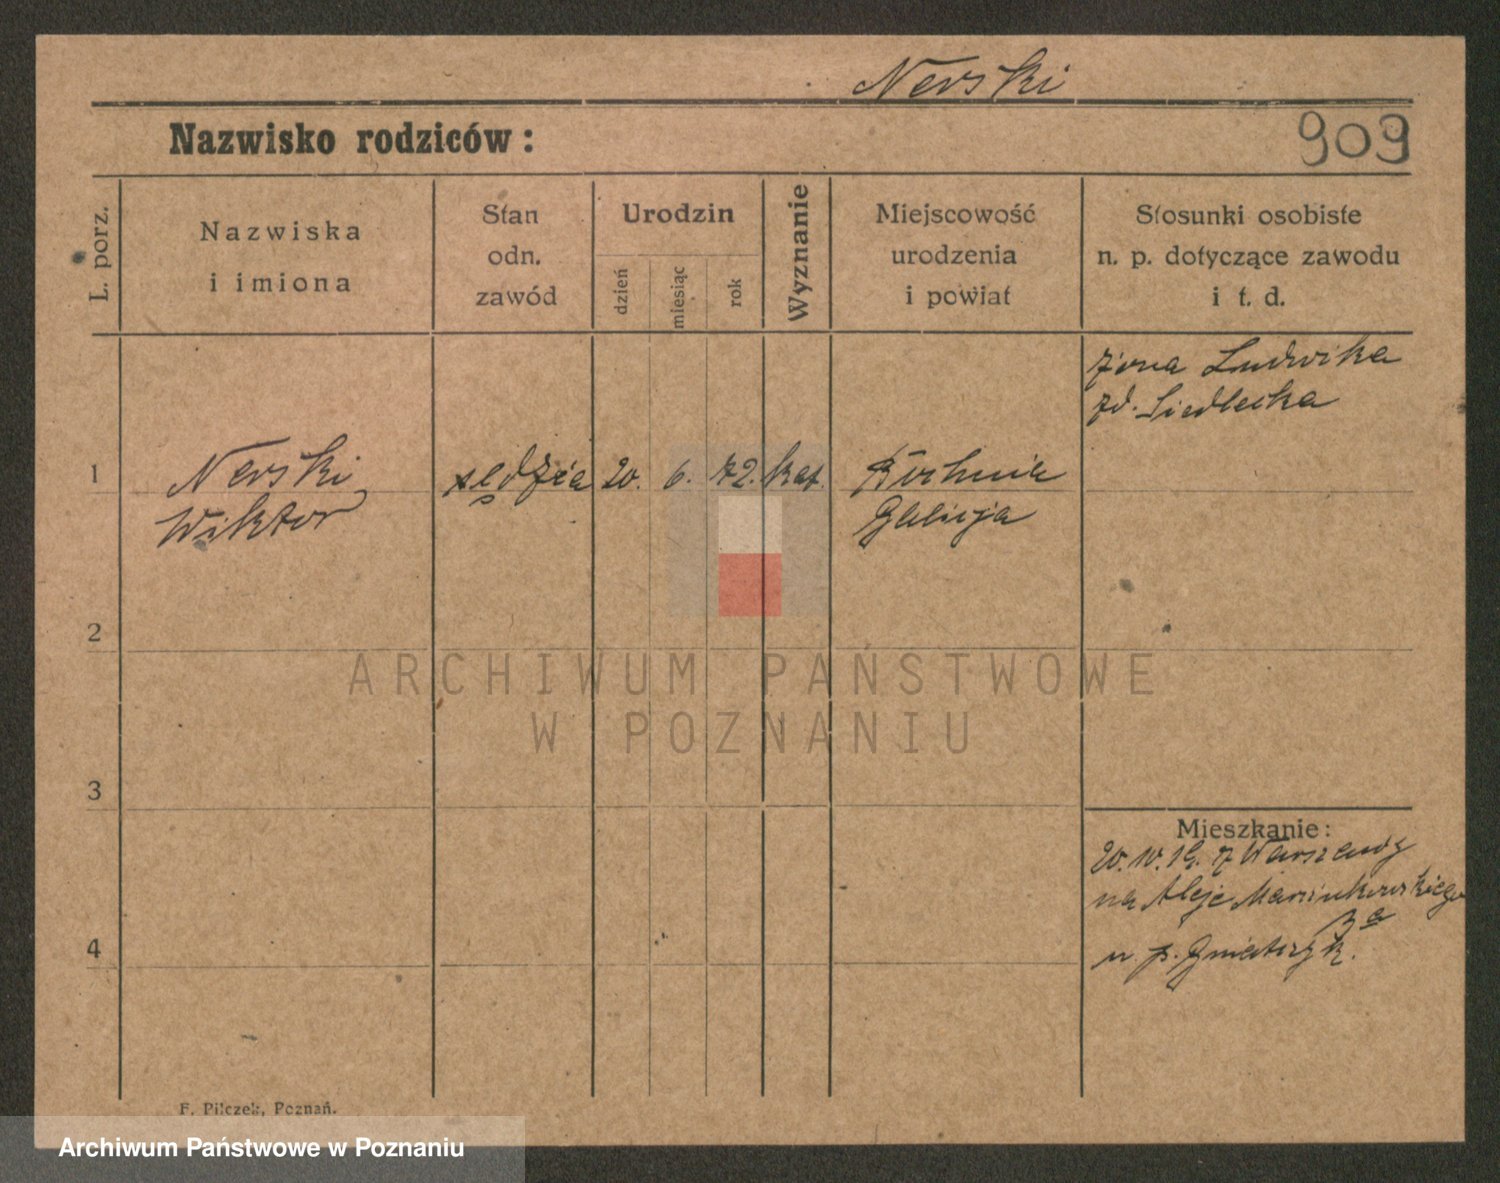 Nerski
Nazwisko rodziców:
909
L. porz.
Nazwiska
i imiona
Stan
odn.
zawód
Urodzin
dzień
miesiąc
rok
Wyznanie
Miejscowość
urodzenia
i powiat
Stosunki osobiste
n. p. dotyczące zawodu
i t. d.
żona Ludwika
zd. Siedlecka
1
Nerski
Wiktor
sędzia
20.
6.
72.
kat.
Bochnia
Galicja
2
3
4
Mieszkanie:
20. 10. 19. z Warszawy
na Aleje Marcinkowskiego
3a
u p.
F. Pilczek, Poznań.
ARCHIWUM PAŃSTWOWE
W POZNANIU
Archiwum Państwowe w Poznaniu